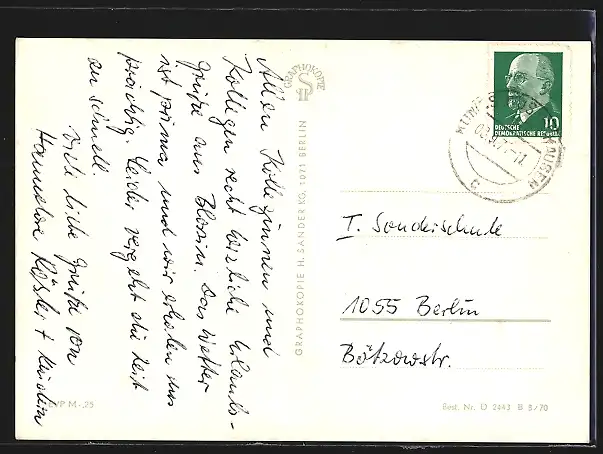 Allen Kolleginnen und
Kollegen recht herzliche Urlaubs-
grüße aus Blossin. Das Wetter
ist prima, und wir erholen uns
prächtig. Leider vergeht die Zeit
zu schnell.
Viele liebe Grüße von
Hannelore
GRAPHOKOPIE
GRAPHOKOPIE H. SANDER KG, 1071 BERLIN
10
DEUTSCHE
DEMOKRATISCHE REPUBLIK
I. Sonderschule
1055 Berlin
Bötzowstr.
VP M -,25
Best. Nr. O 2443 B 3/70